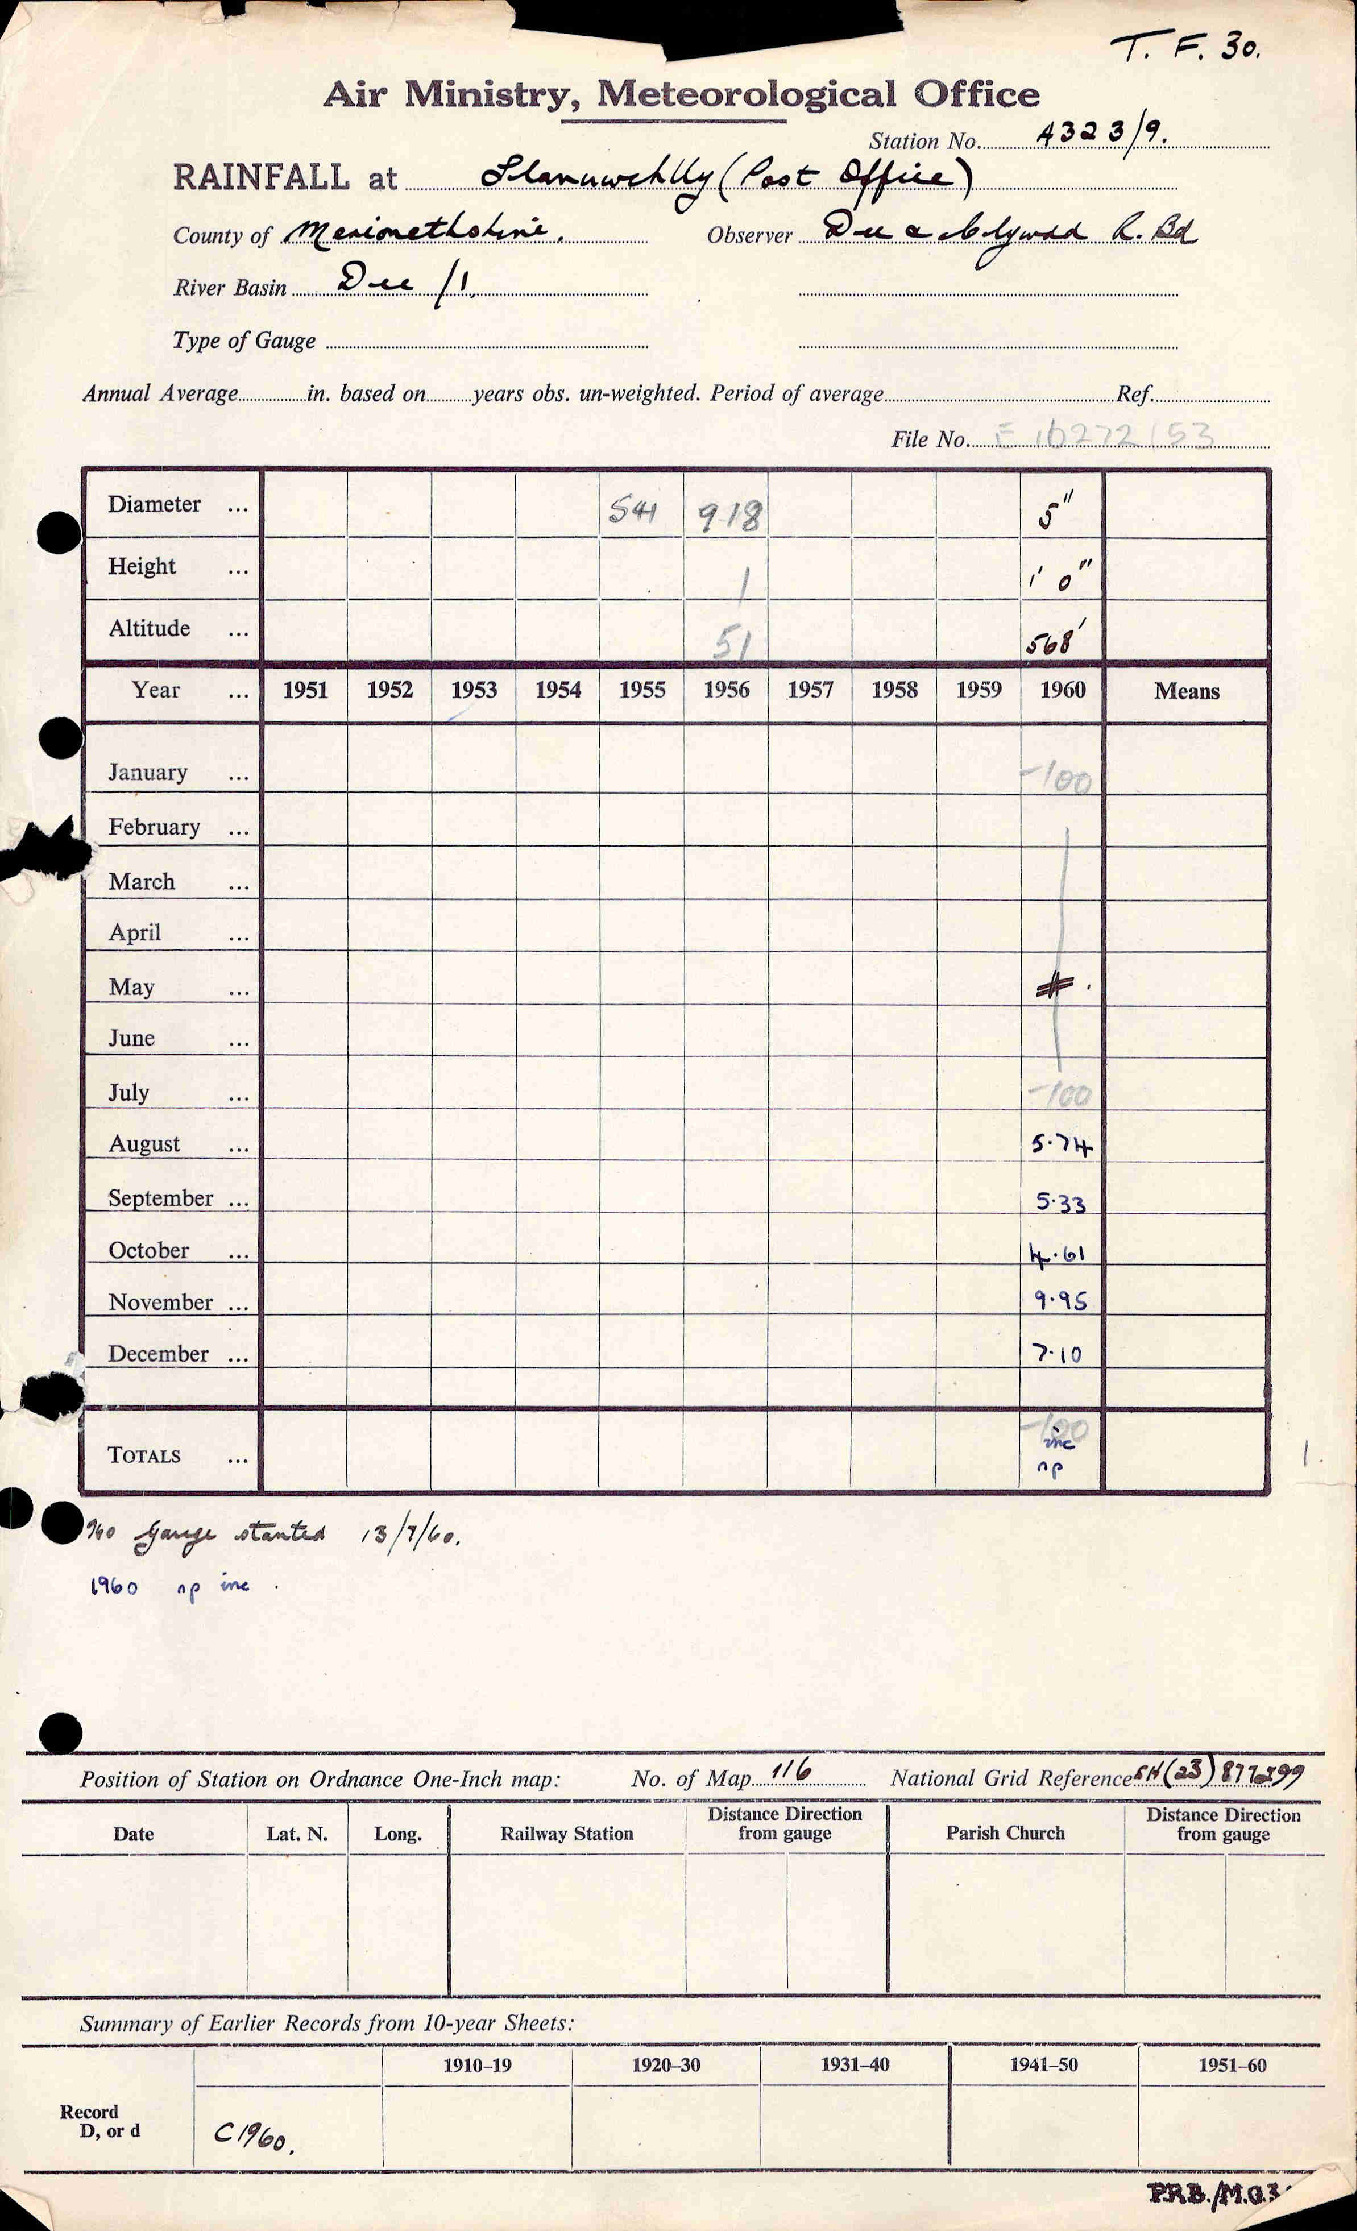 T. F. 30.
Air Ministry, Meteorological Office
Station No. 4323/9.
RAINFALL at Llanuwchlly (Post Office)
County of Merionethshire. Observer Dee & Clywdd R. Bd
River Basin Dee /1.
Type of Gauge
Annual Average in. based on years obs. un-weighted. Period of average Ref.
File No. F 16272/53
Diameter ... 541 918 5"
Height ... 1 1' 0"
Altitude ... 51 568'
Year ... 1951 1952 1953 1954 1955 1956 1957 1958 1959 1960 Means
January ... -100
February ...
March ...
April ...
May ...
June ...
July ... -100
August ... 5.74
September ... 5.33
October ... 4.61
November ... 9.95
December ... 7.10
TOTALS ... -100
inc
np
1.
Gauge started 13/7/60.
1960 np inc.
Position of Station on Ordnance One-Inch map: No. of Map 116 National Grid Reference SH(23)877299
Date Lat. N. Long. Railway Station Distance Direction from gauge Parish Church Distance Direction from gauge
Summary of Earlier Records from 10-year Sheets:
1910–19 1920–30 1931–40 1941–50 1951–60
Record
D, or d C1960.
P.R.B./M.O.3